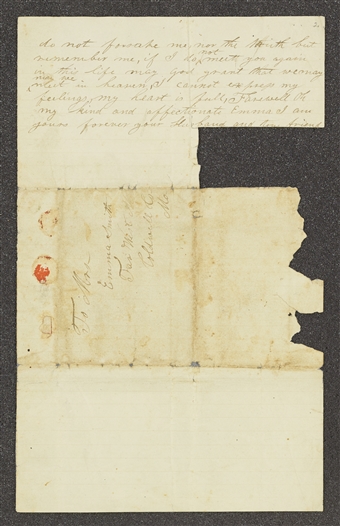 do not forsake me nor the truth but
remember me, if I do not meet you again
in this life may God grant that we may
may we meet in heaven, I cannot express my
feelings, my heart is full, Farewell Oh
my kind and affectionate Emma I am
yours forever your Husband and true friend
To Mrs
Emma Smith
Far West
Coldwell Co
Mo